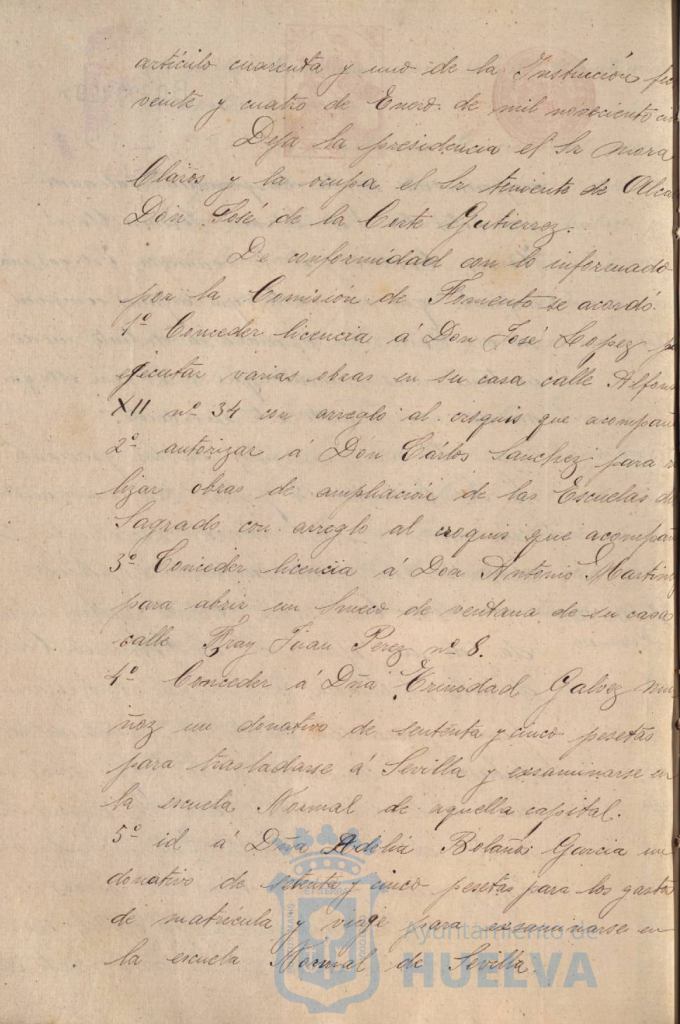 artículo cuarenta y uno de la Instrución
veinte y cuatro de Enero de mil novecientos
Deja la presidencia el Sr mora
Claros y la ocupa el Sr teniente de Alca
Don José de la Corte Gutierrez.
De conformidad con lo informado
por la Comisión de Fomento se acordó.
1º Conceder licencia á Don José Lopez
ejecutar varias obras en su casa calle Alfons
XII nº 34 con arreglo al croquis que acompañ
2º autorizar á Don Cárlos Sanchez para
lizar obras de ampliación de las Escuelas del
Sagrado con arreglo al croquis que acompañ
3º Conceder licencia á Don Antonio Martin
para abrir un hueco de ventana de su casa
calle Fray Juan Perez nº 8.
4º Conceder á Dña Trinidad Galvez mu
ñoz un donativo de setenta y cinco pesetas
para trasladarse á Sevilla y exsaminarse en
la escuela Normal de aquella capital.
5º id á Dña Adelia Bolaños Garcia un
donativo de setenta y cinco pesetas para los gasto
de matrícula y viaje para exsaminarse en
la escuela Normal de Sevilla.
Ayuntamiento de
HUELVA